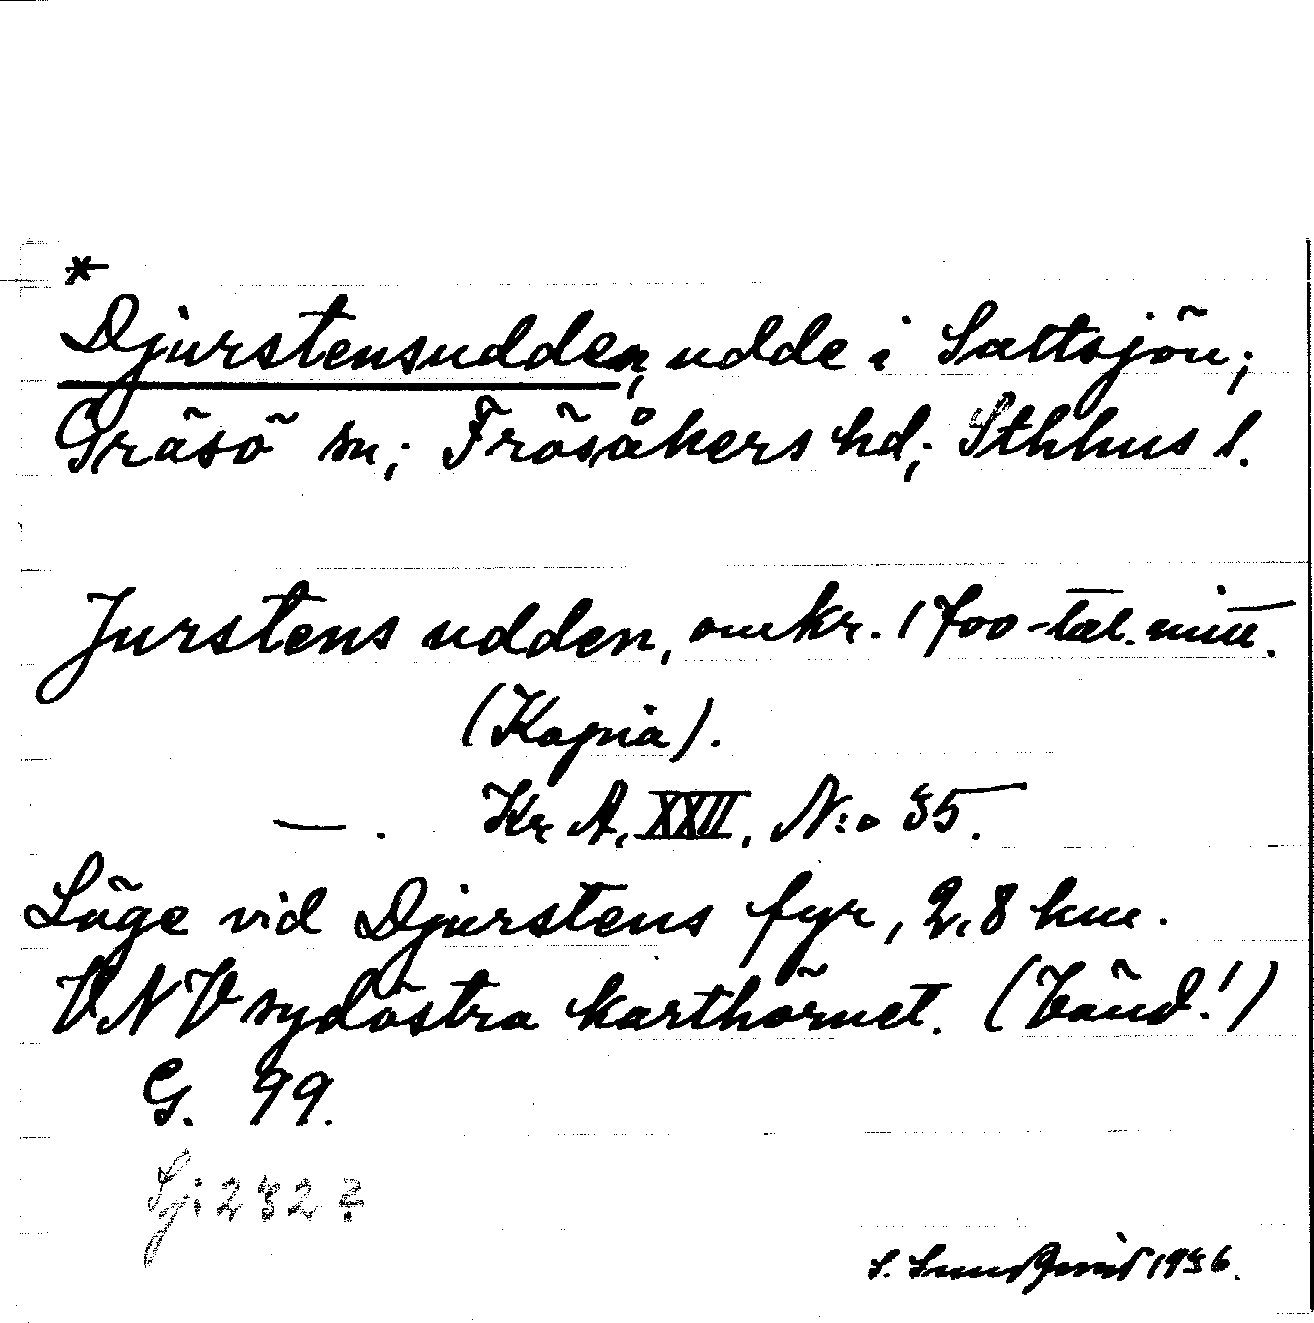 *
Djurstensudden, udde i Saltsjön;
Gräsö sn; Frösåkers hd; Sthlms l.
Jurstens udden, omkr. 1700-tal. mitt.
(Kopia).
— . Kr A, XXII, N:o 35.
Läge vid Djurstens fyr, 2,8 km.
VNV sydöstra karthörnet. (Vänd!)
G. 99.
Sj: 232 ?
S. 1936.